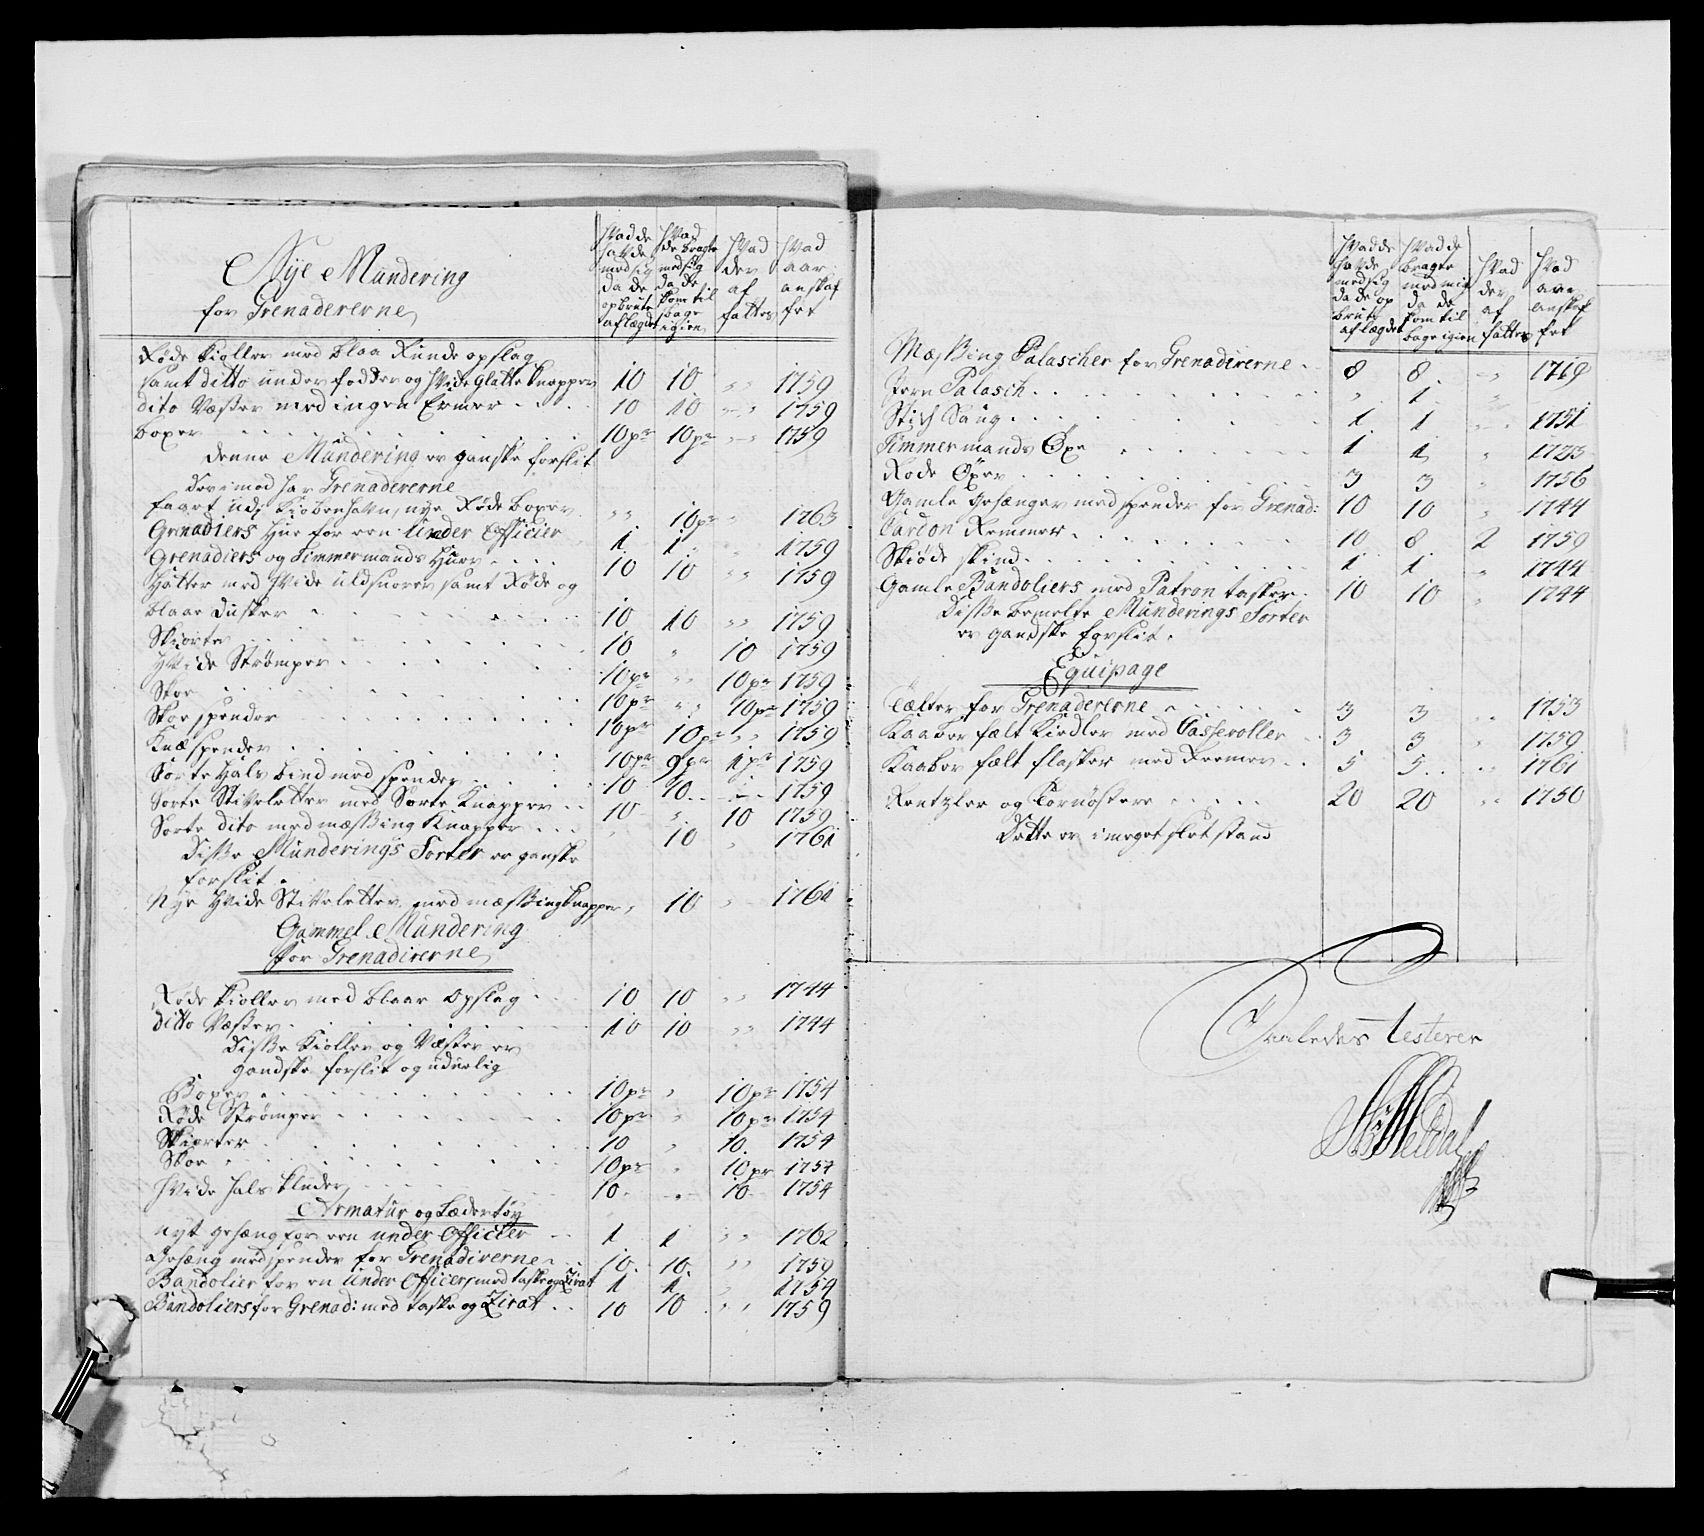 Nÿe Mundering
for Grenadererne
Hvad de hafde med sig da de opbrute aflægdet
Hvad de bragte med sig da de kom til bage igien
Hvad der af fattes
Hvad aar anskaffet
Røde Kioller med blaa Runde opslag
samt ditto under fodder og Hvide glatte Knapper 10 10 " " 1759
dito Væster med ingen Ermer 10 10 " " 1759
boxer 10pr 10pr " " 1759
denne Mundering er ganske forslit
derimod har Grenadererne
faaet udj Kiøbenhafn, nye Røde boxer " " 10pr " 1763
Grenadiers Hue for een Under Officier 1 1 " " 1759
Grenadiers og Timmermands Huer 10 10 " " 1759
Hatter med Hvide uldsnorer samt Røde og
blaae dusker 10 10 " " 1759
Skiorter 10 " 10 1759
Hvide Strømper 10pr " " 10pr 1759
Skoe 10pr " " 10pr 1759
Skoe spender 10pr 10pr " " 1759
Knæspender 10pr 9pr 1pr 1759
Sorte Hals bind med spender 10 10 " " 1759
Sorte Stivletter med Sorte Knapper 10 " 10 1759
Sorte dito med mæssing Knapper " 10 " 1761
Disse Munderings Sorter er ganske
forslit.
Nye Hvide Stivletter med mæssing Knapper " 10 " 1761
Gammel Mundering
for Grenadirerne
Røde Kioller med blaae Opslag 10 10 " " 1744
ditto Væster 10 10 " " 1744
Disse Kioller og Væster er
gandske forslit og uduelig
Boxer 10pr " 10pr 1754
Røde Strømper 10pr " 10pr 1754
Skiorter 10 " 10 1754
Skoe 10pr " 10pr 1754
Hvide Hals klude 10 " 10 1754
Armatur og Lædertøy
Nyt gehæng for een under Officier 1 1 " " 1762
Gehæng med spender for Grenadirerne 10 10 " " 1759
Bandolier for en Under Officer med taske og Zirat 1 1 " 1759
Bandoliers for Grenad: med taske og Zirat 10 10 " " 1759
Hvad de hafde med sig da de op brute aflægdet
Hvad de bragte med sig da de kom til bage igien
Hvad der af fattes
Hvad aar anskaffet
Mæssing Palascher for Grenadirerne 8 8 " " 1719
Jern Palasch " 1 "
Stich Saug 1 1 " " 1751
Timmermands Öxe 1 1 " 1723
Rode Öxer 3 3 " 1756
Gamle Gehænger med spender for Grenad: 10 10 " 1744
Carton Remmer 10 8 2 1759
Skiøde skind 1 1 " 1744
Gamle Bandoliers med Patron tasker 10 10 " 1744
Disse bemelte Munderings Sorter
er gandske forslit.
Equipage
Tælter for Grenadererne 3 3 " " 1753
Kaaber fælt Kiedler med Casseroller 3 3 " 1759
Kaaber fælt flasker med Remmer 5 5 " " 1761
Rentzler og Tornøstere 20 20 " " 1750
Dette er i meget slet stand
Saaledes testerer